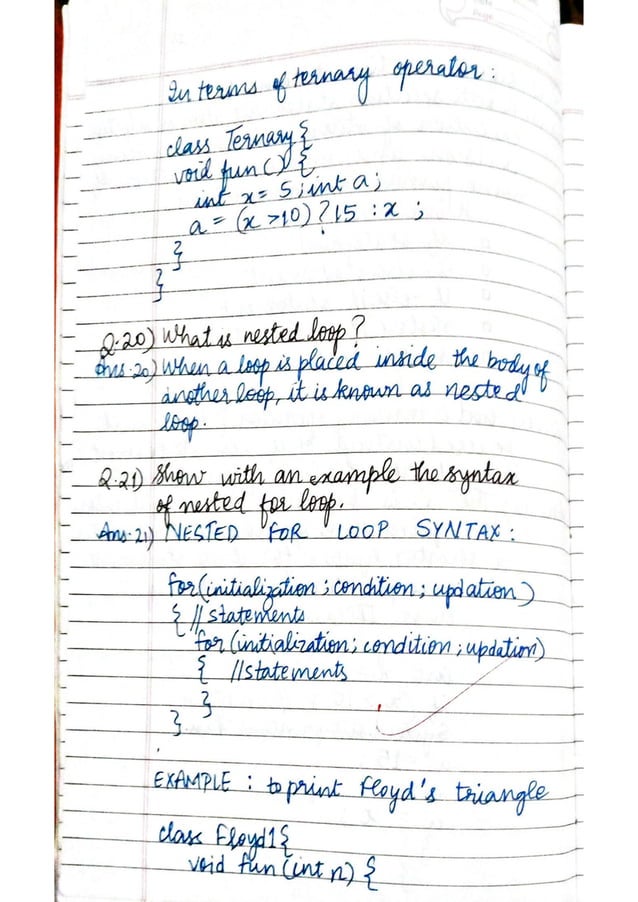 In terms of ternary operator :
class Ternary {
void fun() {
int x = 5; int a;
a = (x >10) ? 15 : x ;
}
}
Q.20) What is nested loop ?
Ans.20) When a loop is placed inside the body of
another loop, it is known as nested
loop.
Q.21) Show with an example the syntax
of nested for loop.
Ans.21) NESTED FOR LOOP SYNTAX :
for(initialization ; condition ; updation )
{ // statements
for (initialization; condition ; updation)
{ //statements
}
}
EXAMPLE : to print Floyd's triangle
class Floyd1{
void fun (int n) {